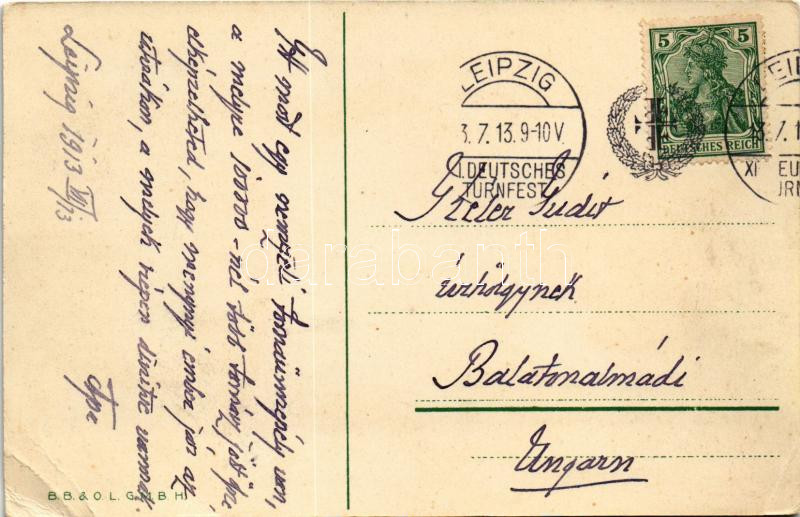 Leipzig 1913 VII/13
Itt most egy nemzeti tornaünnepély van,
a melyre 100000-nél több tornász jött öszve
elképzelheted, hogy mennyi ember jár az
utcákon, a melyek szépen díszítve vannak.
Apa
LEIPZIG
3.7.13.9-10V.
I.DEUTSCHES
TURNFEST
5 5
DEUTSCHES REICH
LEIP
3.7.1
XI EU
URN
Judit
úrhölgynek
Balatonalmádi
Ungarn
B.B.&O.L.G.M.B.H.
darabanth